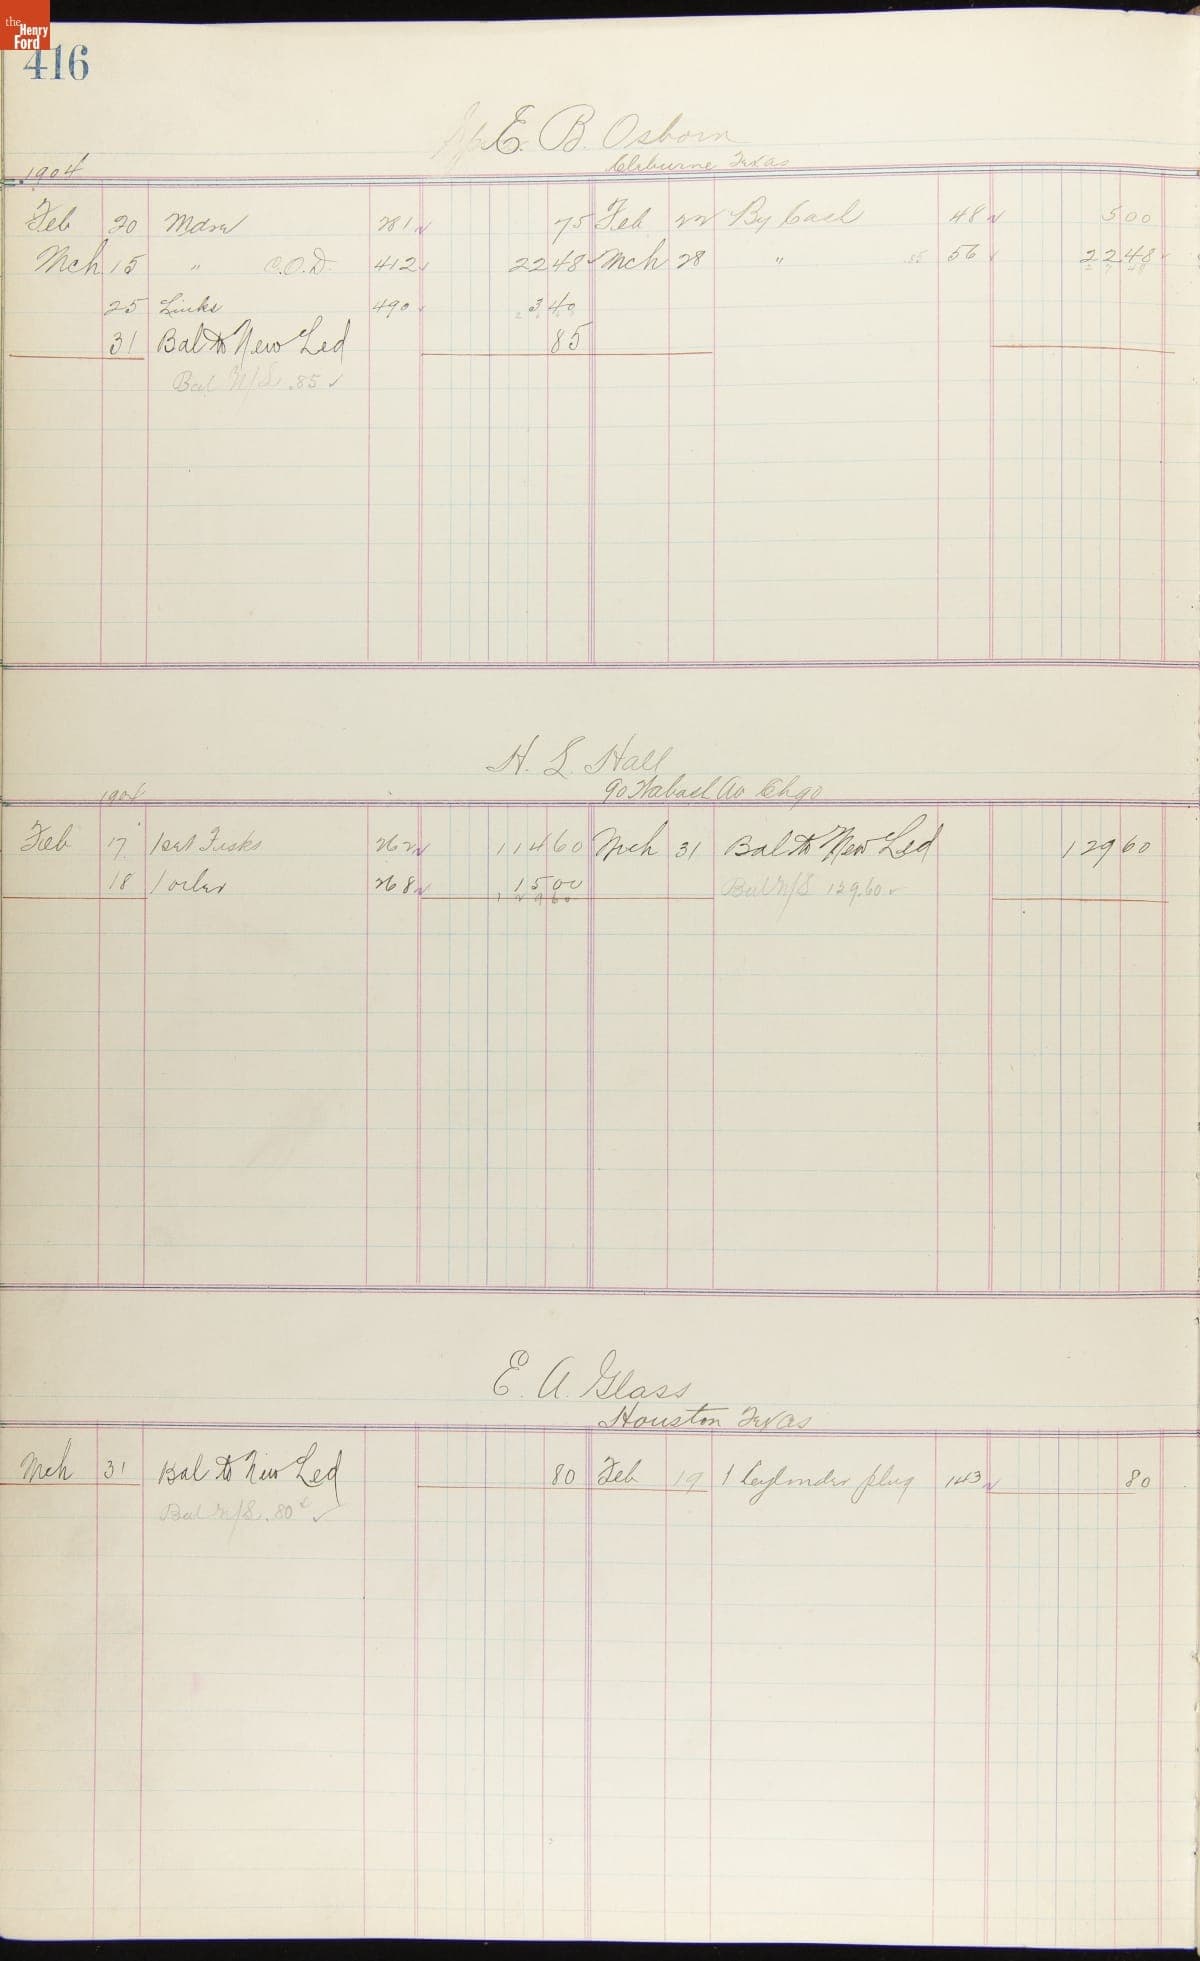 the Henry Ford
416
E. B. Osborn
Cleburne Texas
1904
Feb 20 Mdse 281 75 Feb 22 By Cash 48 500
Mch 15 " C.O.D. 412 2248 Mch 28 " 56 2248
25 Links 490 340
31 Bal to New Led 85
Bal N/L .85
H. L. Hall
90 Wabash Av Chgo
1904
Feb 17 1 set Fisks 262 11460 Mch 31 Bal to New Led 12960
18 1 oiler 268 1500 Bal N/L 129.60
12960
E. A. Glass
Houston Texas
Mch 31 Bal to New Led 80 Feb 19 1 Cylinder plug 143 80
Bal N/L .80